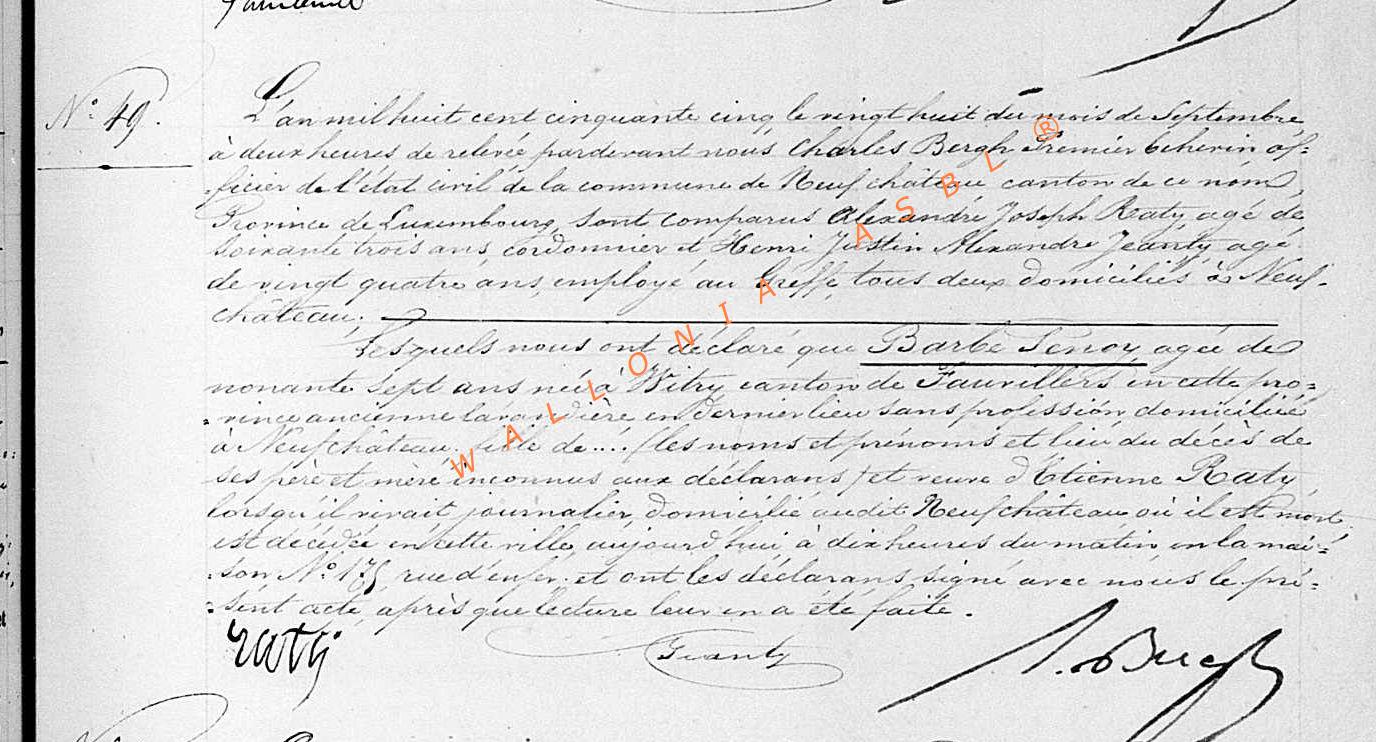 N° 49.
L'an mil huit cent cinquante cinq le vingt huit du mois de Septembre
à deux heures de relevée pardevant nous Charles Bergh Premier Echevin of-
ficier de l'état civil de la commune de Neufchâteau canton de ce nom,
Province de Luxembourg, sont comparus Alexandre Joseph Raty agé de
soixante trois ans, cordonnier et Henri Justin Alexandre Jeanty agé
de vingt quatre ans, employé au Greffe, tous deux domiciliés à Neuf-
château.
Lesquels nous ont déclaré que Barbe Senoy agée de
nonante sept ans née à Witry canton de Fauvillers en cette pro=
=vince ancienne lavandière en dernier lieu sans profession domiciliée
à Neufchâteau, fille de .... (les noms et prénoms et lieu du décès de
ses père et mère inconnus aux déclarans) et veuve d'Etienne Raty
lorsqu'il vivait journalier, domicilié audit Neufchâteau où il est mort
est décédée en cette ville aujourd'hui à dix heures du matin en la mai=
=son N° 175 rue d'enfer. et ont les déclarans signé avec nous le pré=
=sent acte, après que lecture leur en a été faite.
raty Jeanty Bergh
WALLONIA ASBL ®